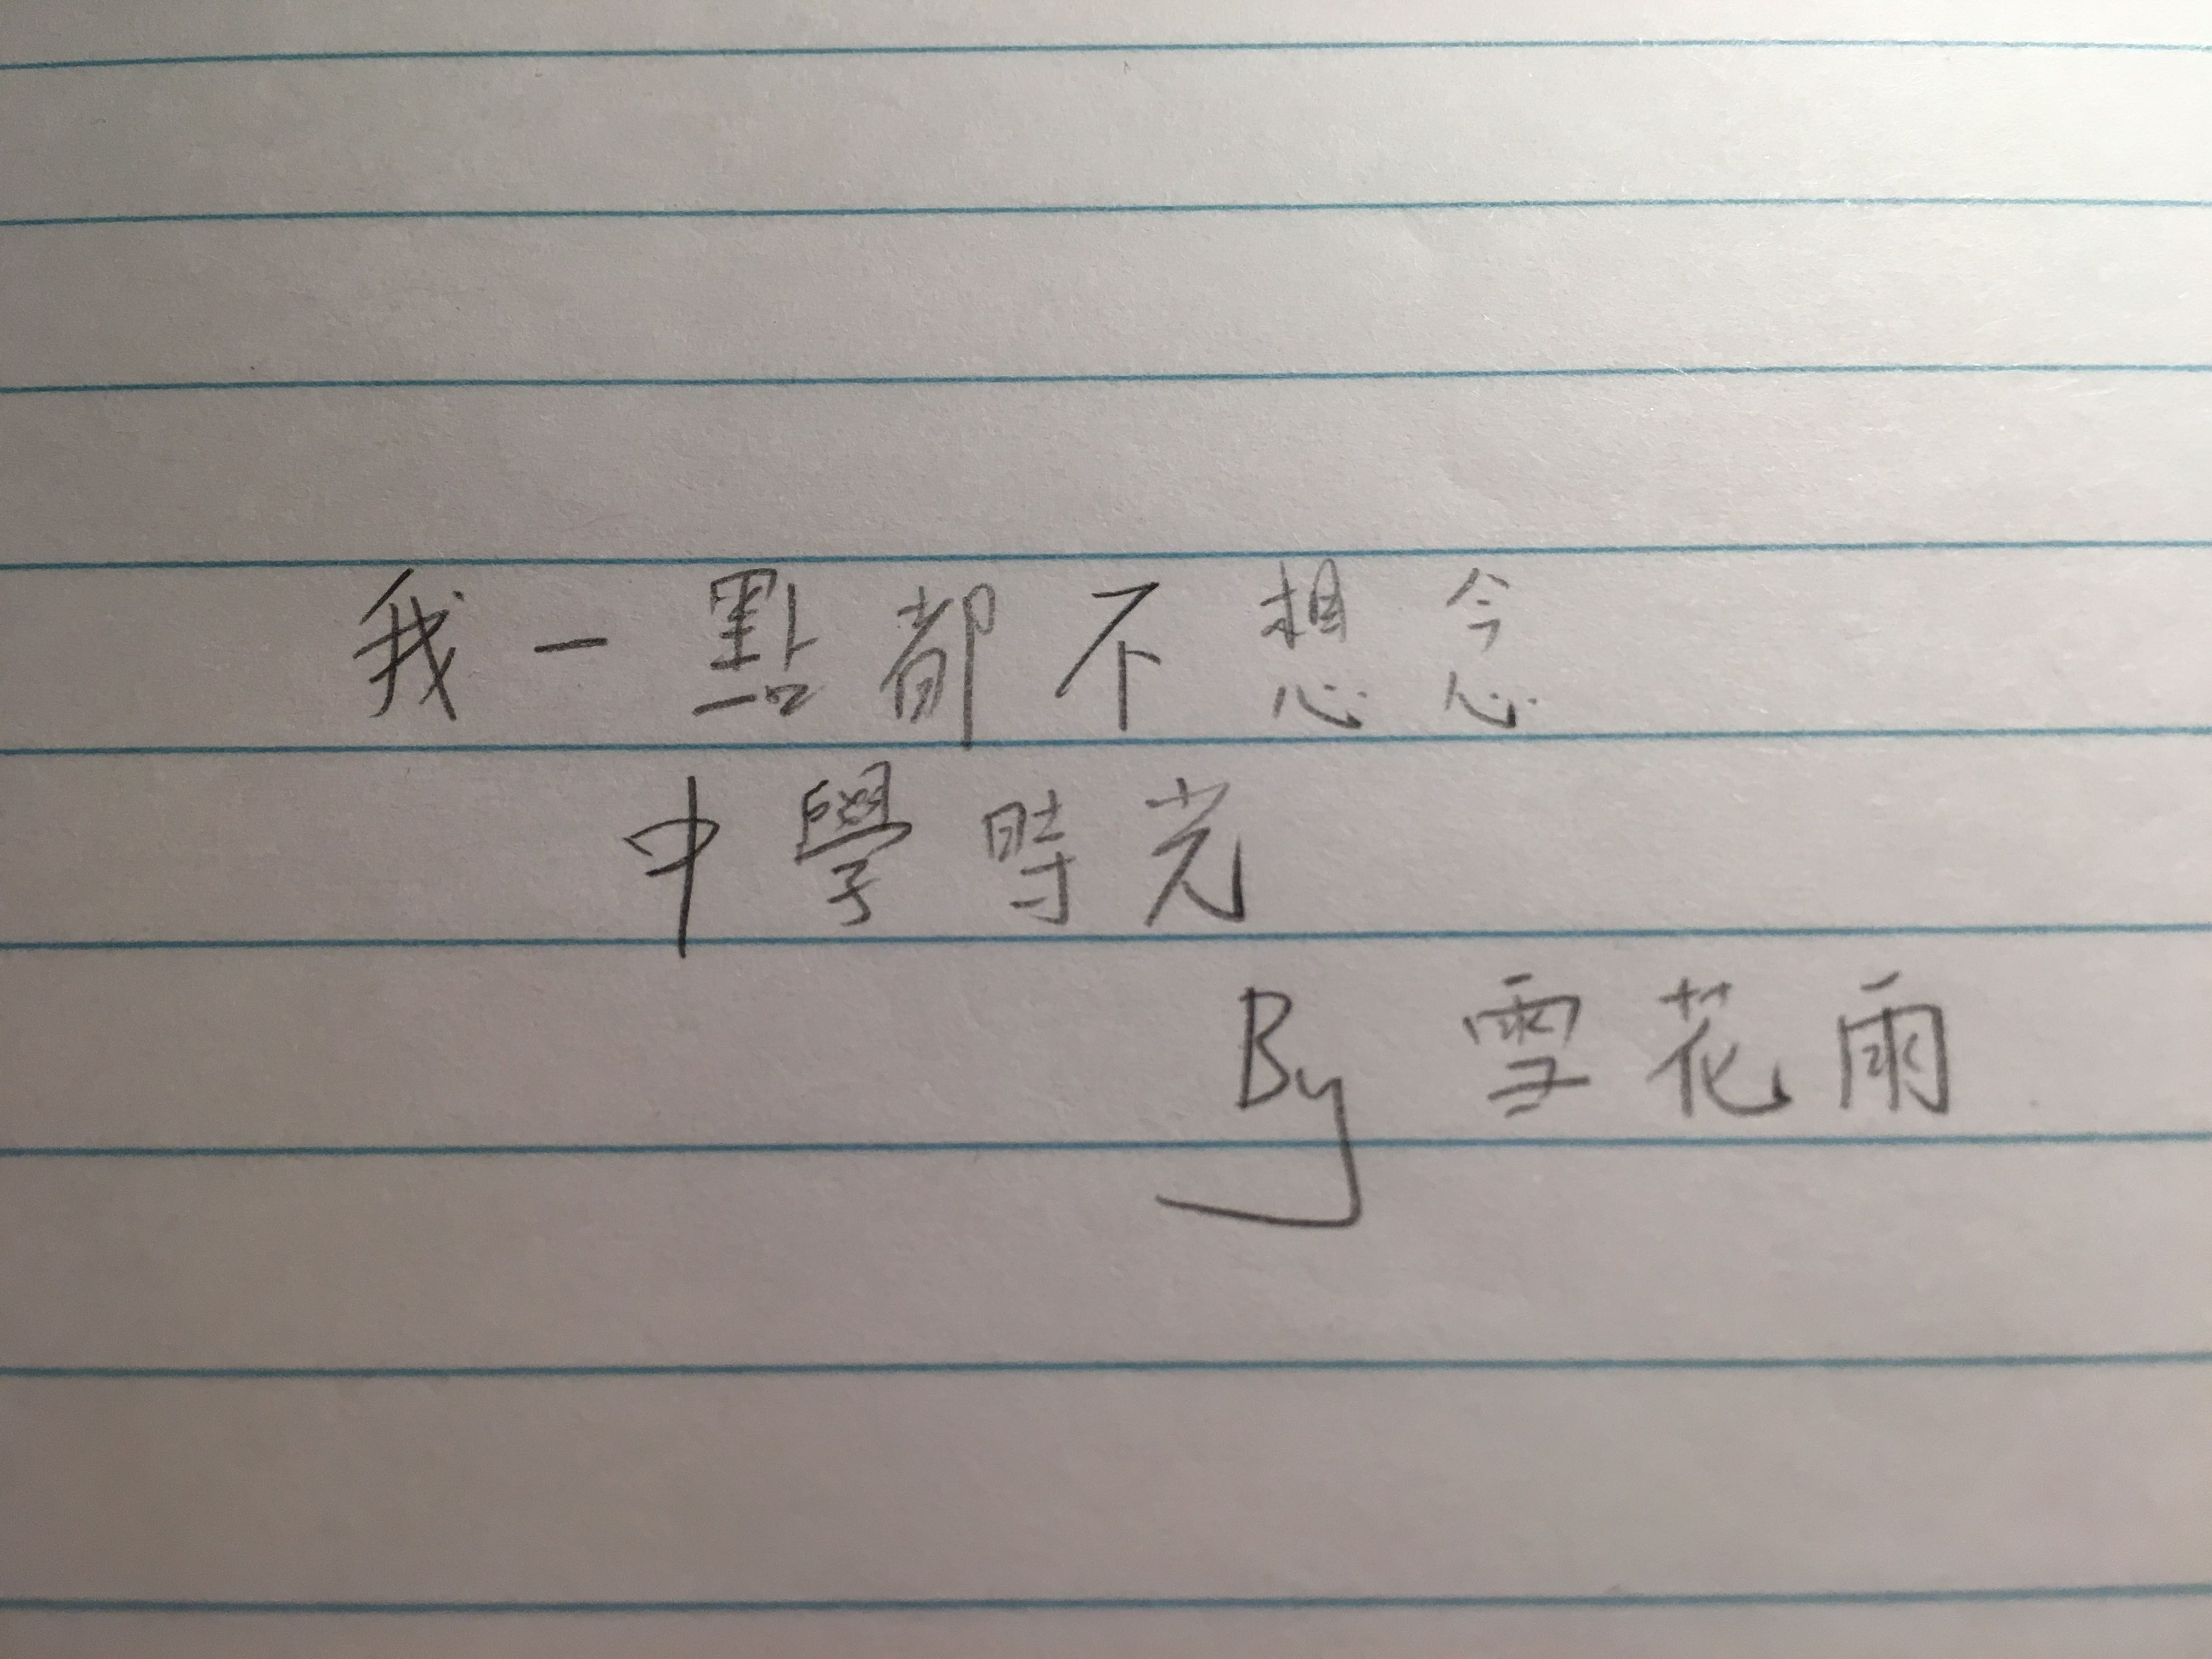 我一點都不想念
中學時光
By 雪花雨